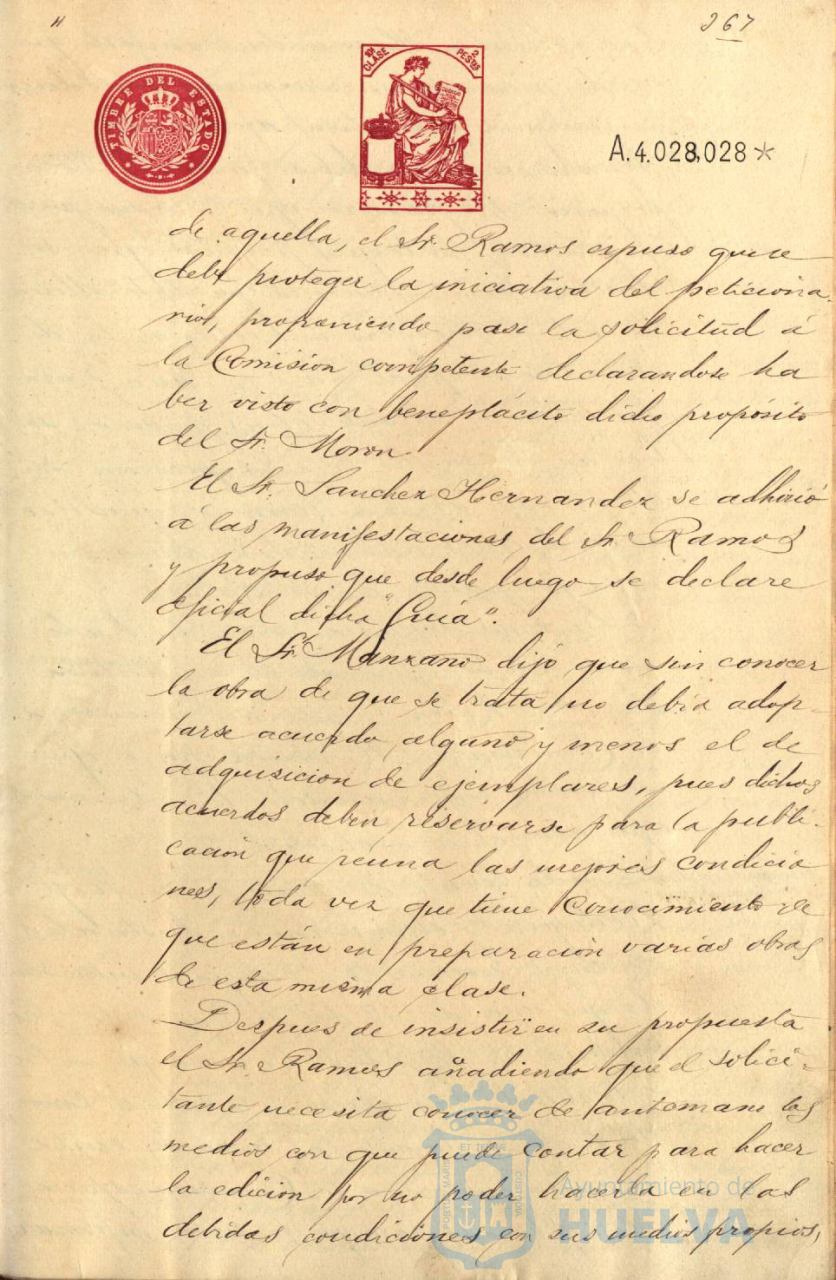 "
267
TIMBRE DEL ESTADO
10ª CLASE
2 PESTAS
A.4.028,028*
de aquella, el Sr. Ramos expuso que se
debe proteger la iniciativa del peticiona-
rio, proponiendo pase la solicitud á
la Comisión competente declarandose ha
ber visto con beneplácito dicho propósito
del Sr. Moron
El Sr. Sanchez Hernandez se adhirió
á las manifestaciones del Sr. Ramos
y propuso que desde luego se declare
oficial dicha "Guía".
El Sr. Manzano dijo que sin conocer
la obra de que se trata no debía adop-
tarse acuerdo alguno y menos el de
adquisicion de ejemplares, pues dichos
acuerdos deben reservarse para la publi-
cación que reuna las mejores condicio
nes, toda vez que tiene conocimiento de
que están en preparación varias obras
de esta misma clase.
Despues de insistir en su propuesta
el Sr. Ramos añadiendo que el solici-
tante necesita conocer de antemano los
medios con que puede contar para hacer
la edicion por no poder hacerla en las
debidas condiciones con sus medios propios,
Ayuntamiento de
HUELVA